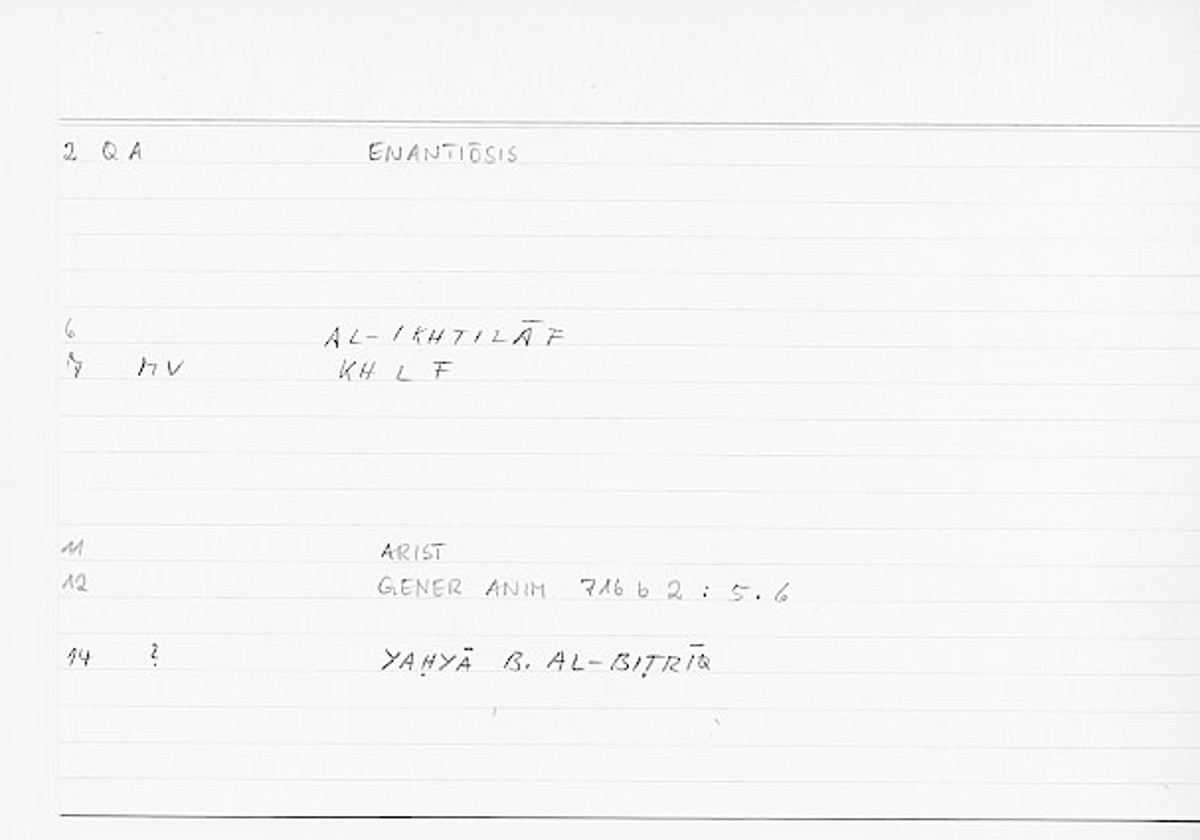 2 Q A ENANTIŌSIS
6 AL-IKHTILĀF
7 MV KH L F
11 ARIST
12 GENER ANIM 716 b 2 : 5.6
14 ? YAḤYĀ B. AL-BIṬRĪQ